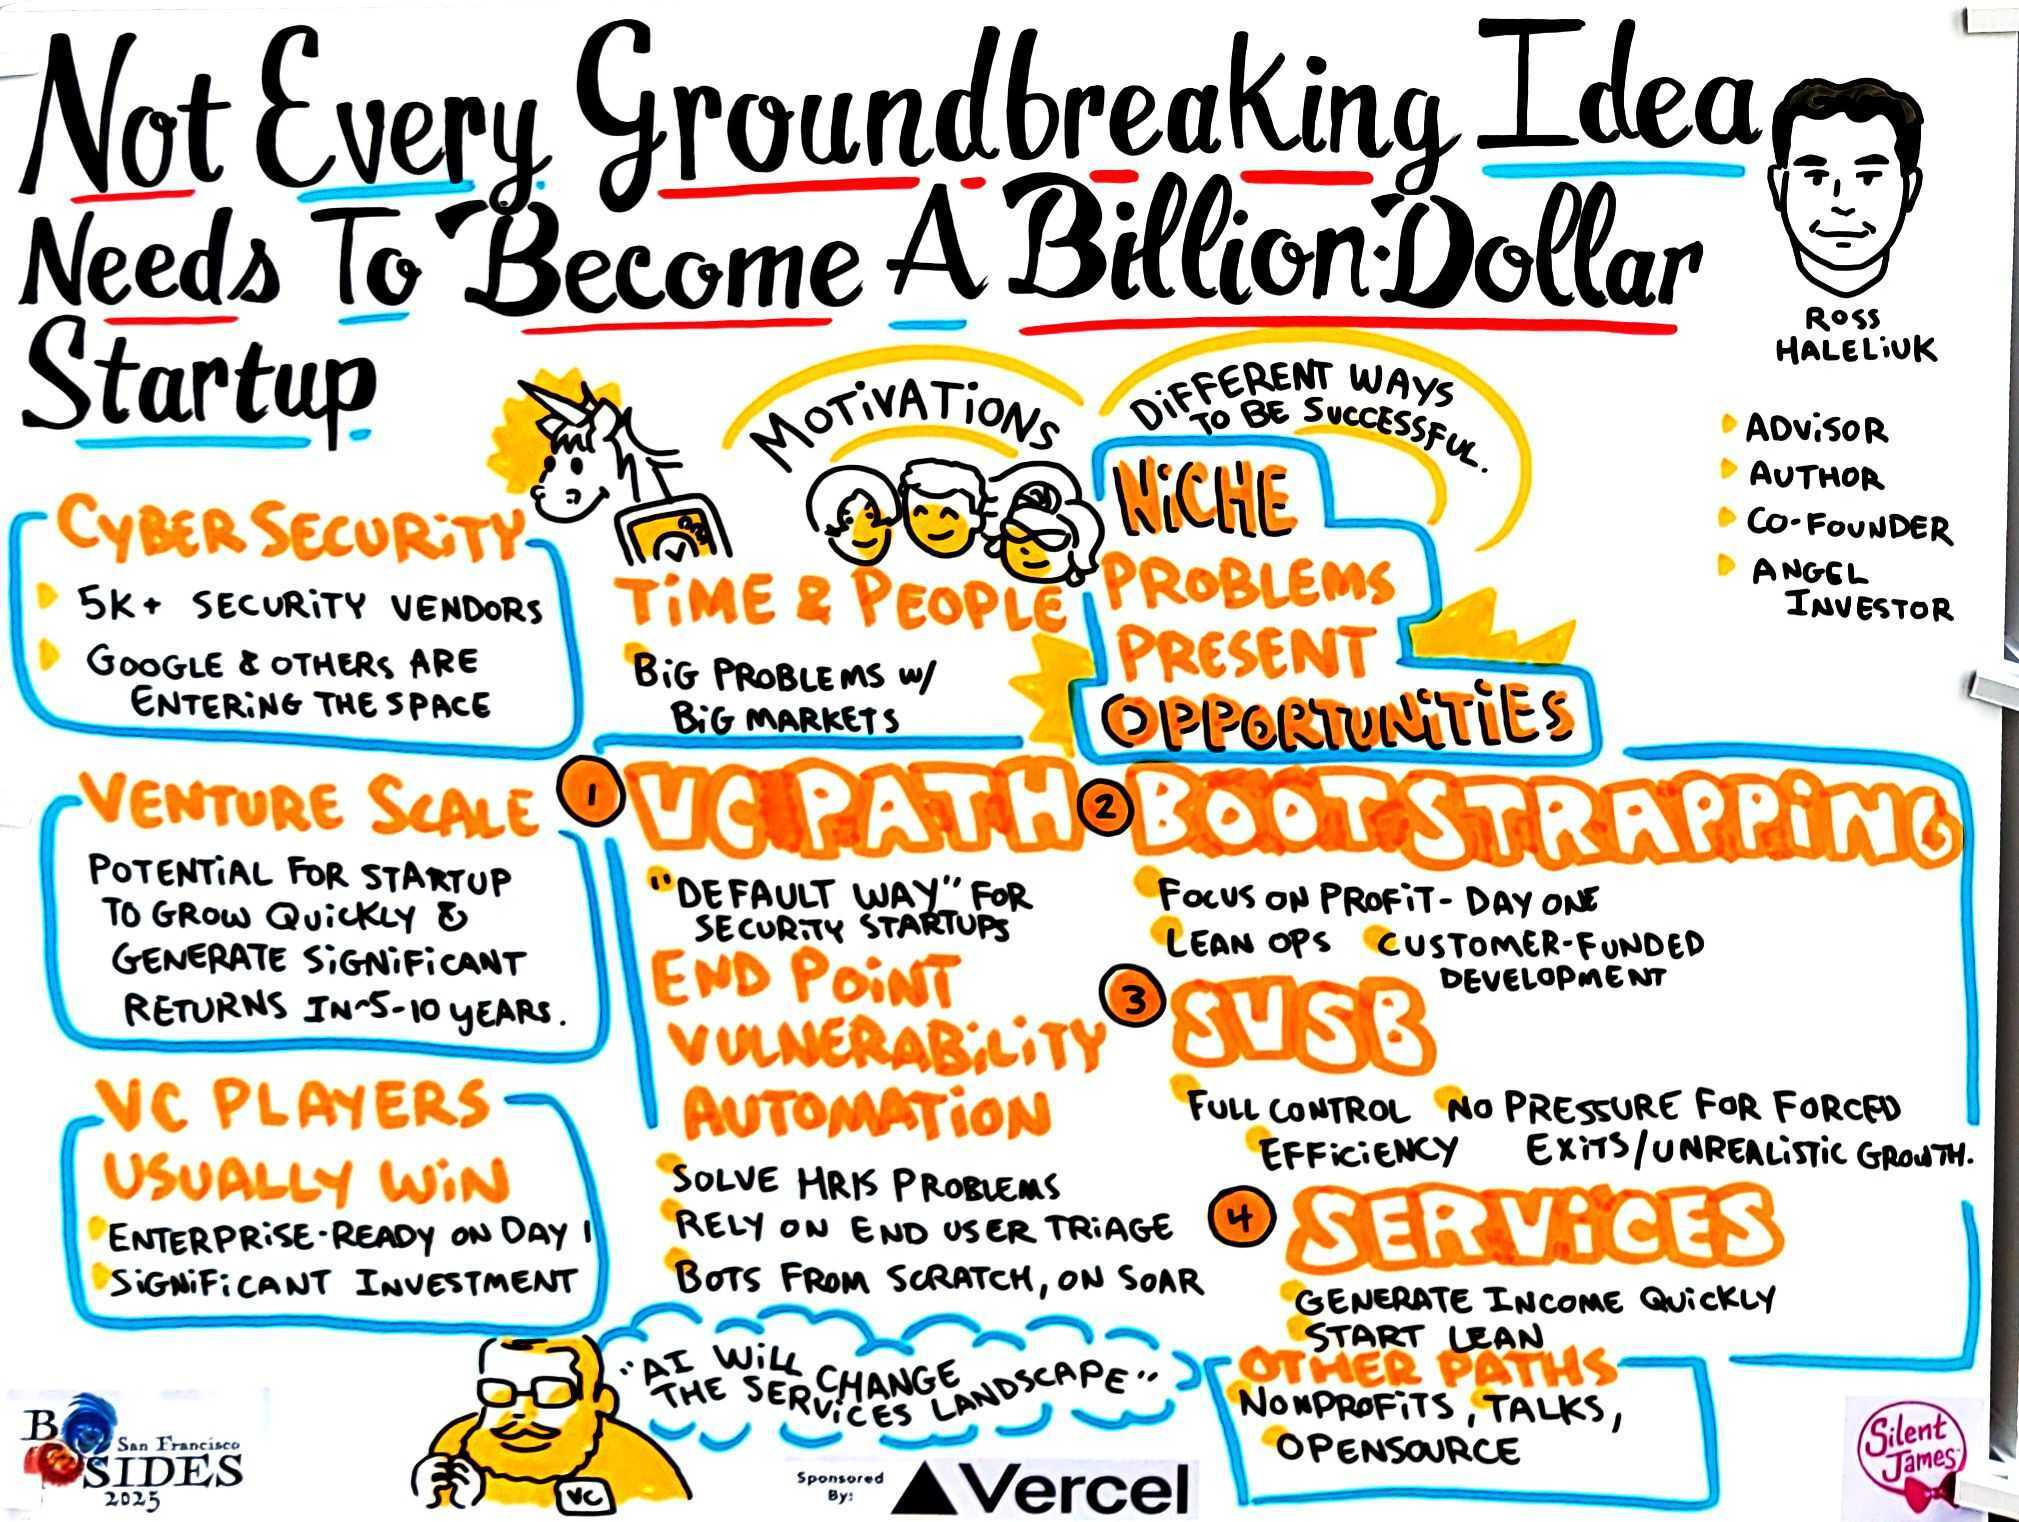 Not Every Groundbreaking Idea
Needs To Become A Billion-Dollar
Startup
ROSS
HALELIUK
ADVISOR
AUTHOR
CO-FOUNDER
ANGEL
INVESTOR
MOTIVATIONS
DIFFERENT WAYS
TO BE SUCCESSFUL.
CYBER SECURITY
5K+ SECURITY VENDORS
GOOGLE & OTHERS ARE
ENTERING THE SPACE
TIME & PEOPLE
BIG PROBLEMS W/
BIG MARKETS
NICHE
PROBLEMS
PRESENT
OPPORTUNITIES
VENTURE SCALE
POTENTIAL FOR STARTUP
TO GROW QUICKLY &
GENERATE SIGNIFICANT
RETURNS IN ~5-10 YEARS.
VC PLAYERS
USUALLY WIN
ENTERPRISE-READY ON DAY 1
SIGNIFICANT INVESTMENT
1 VC PATH
"DEFAULT WAY" FOR
SECURITY STARTUPS
END POINT
VULNERABILITY
AUTOMATION
SOLVE HRIS PROBLEMS
RELY ON END USER TRIAGE
BOTS FROM SCRATCH, ON SOAR
2 BOOTSTRAPPING
FOCUS ON PROFIT - DAY ONE
LEAN OPS CUSTOMER-FUNDED
DEVELOPMENT
3 SVSB
FULL CONTROL NO PRESSURE FOR FORCED
EFFICIENCY EXITS/UNREALISTIC GROWTH.
4 SERVICES
GENERATE INCOME QUICKLY
START LEAN
OTHER PATHS
NONPROFITS, TALKS,
OPENSOURCE
"AI WILL CHANGE
THE SERVICES LANDSCAPE"
VC
BSIDES
San Francisco
2025
Sponsored
By:
Vercel
Silent
James